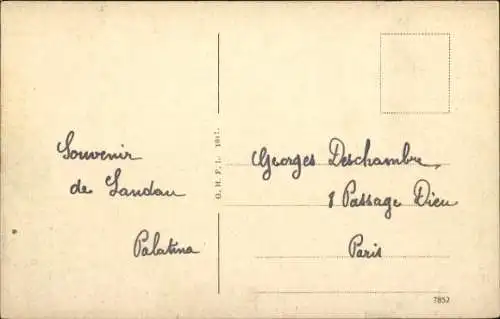 Souvenir
de Landau
Palatina
G. H. F. L. 1917.
Georges Deschambre,
8 Passage Dieu
Paris
7852